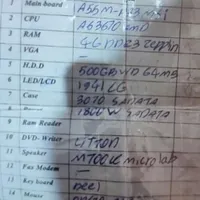 1 Main board A55M-P33 MSI
2 CPU A63670 AMD
3 RAM 4G DDR3 Zeppelin
4 VGA -
5 H.D.D 500GB WD 64MB
6 LED/LCD 1941 LG
7 Case 3070 SADATA
SADATA
9 Ram Reader
10 DVD- Writer LITEON
11 Speaker M700U6 microlab
12 Fax Modem -
13 Key board
14 Mouse